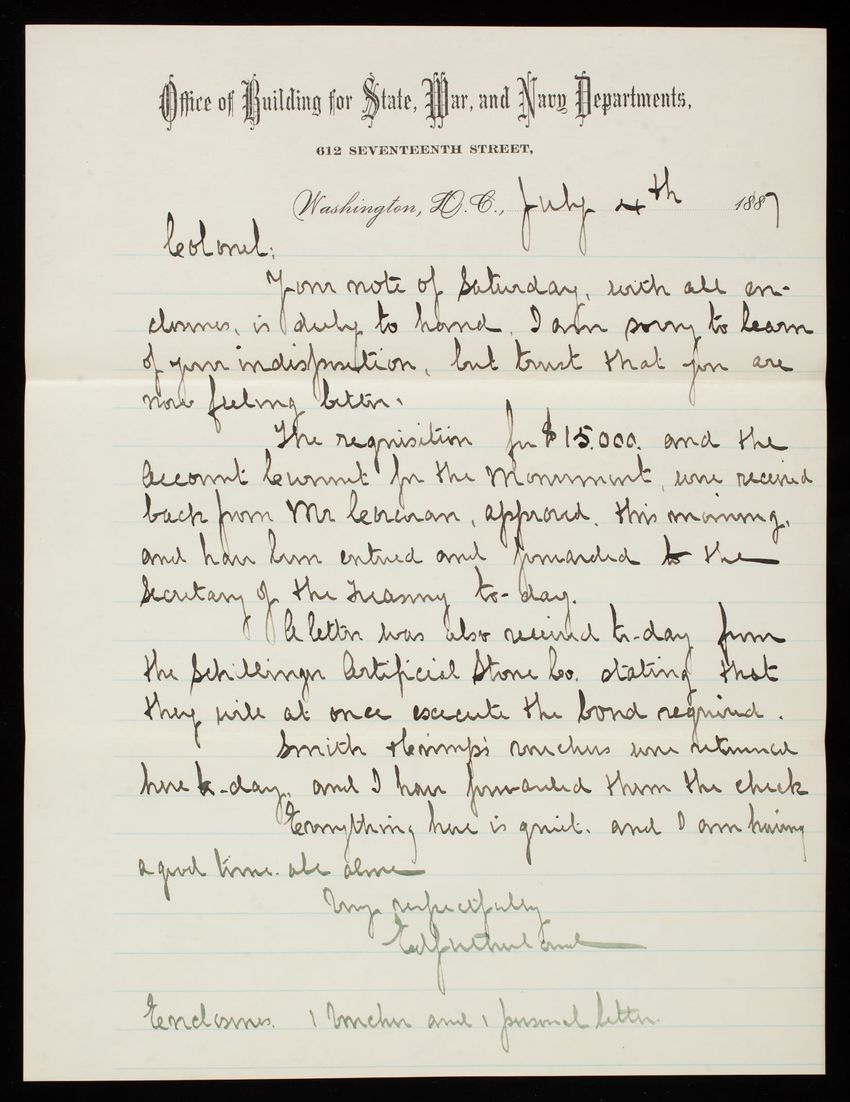 Office of Building for State, War, and Navy Departments,
612 SEVENTEENTH STREET,
Washington, D.C., July 4th 1887
Colonel;
Your note of Saturday, with all en-
closures, is duly to hand. I am sorry to learn
of your indisposition, but trust that you are
now feeling better.
The requisition for $15.000. and the
Account Current for the Monument, were received
back from Mr Corcoran, approved, this morning,
and have been entered and forwarded to the
Secretary of the Treasury to-day.
A letter was also received to-day from
the Schillinger Artificial Stone Co. stating that
they will at once execute the bond required.
Smith vouchers were returned
here to-day, and I have forwarded them the check
Everything here is quiet. and I am having
a good time. all alone
Very respectfully
Enclosures. 1 Voucher and 1 personal letter.